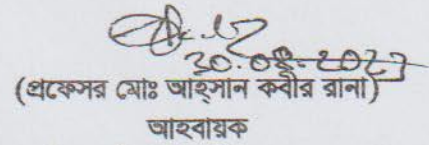 30.08.2023
(প্রফেসর মোঃ আহ্সান কবীর রানা)
আহবায়ক